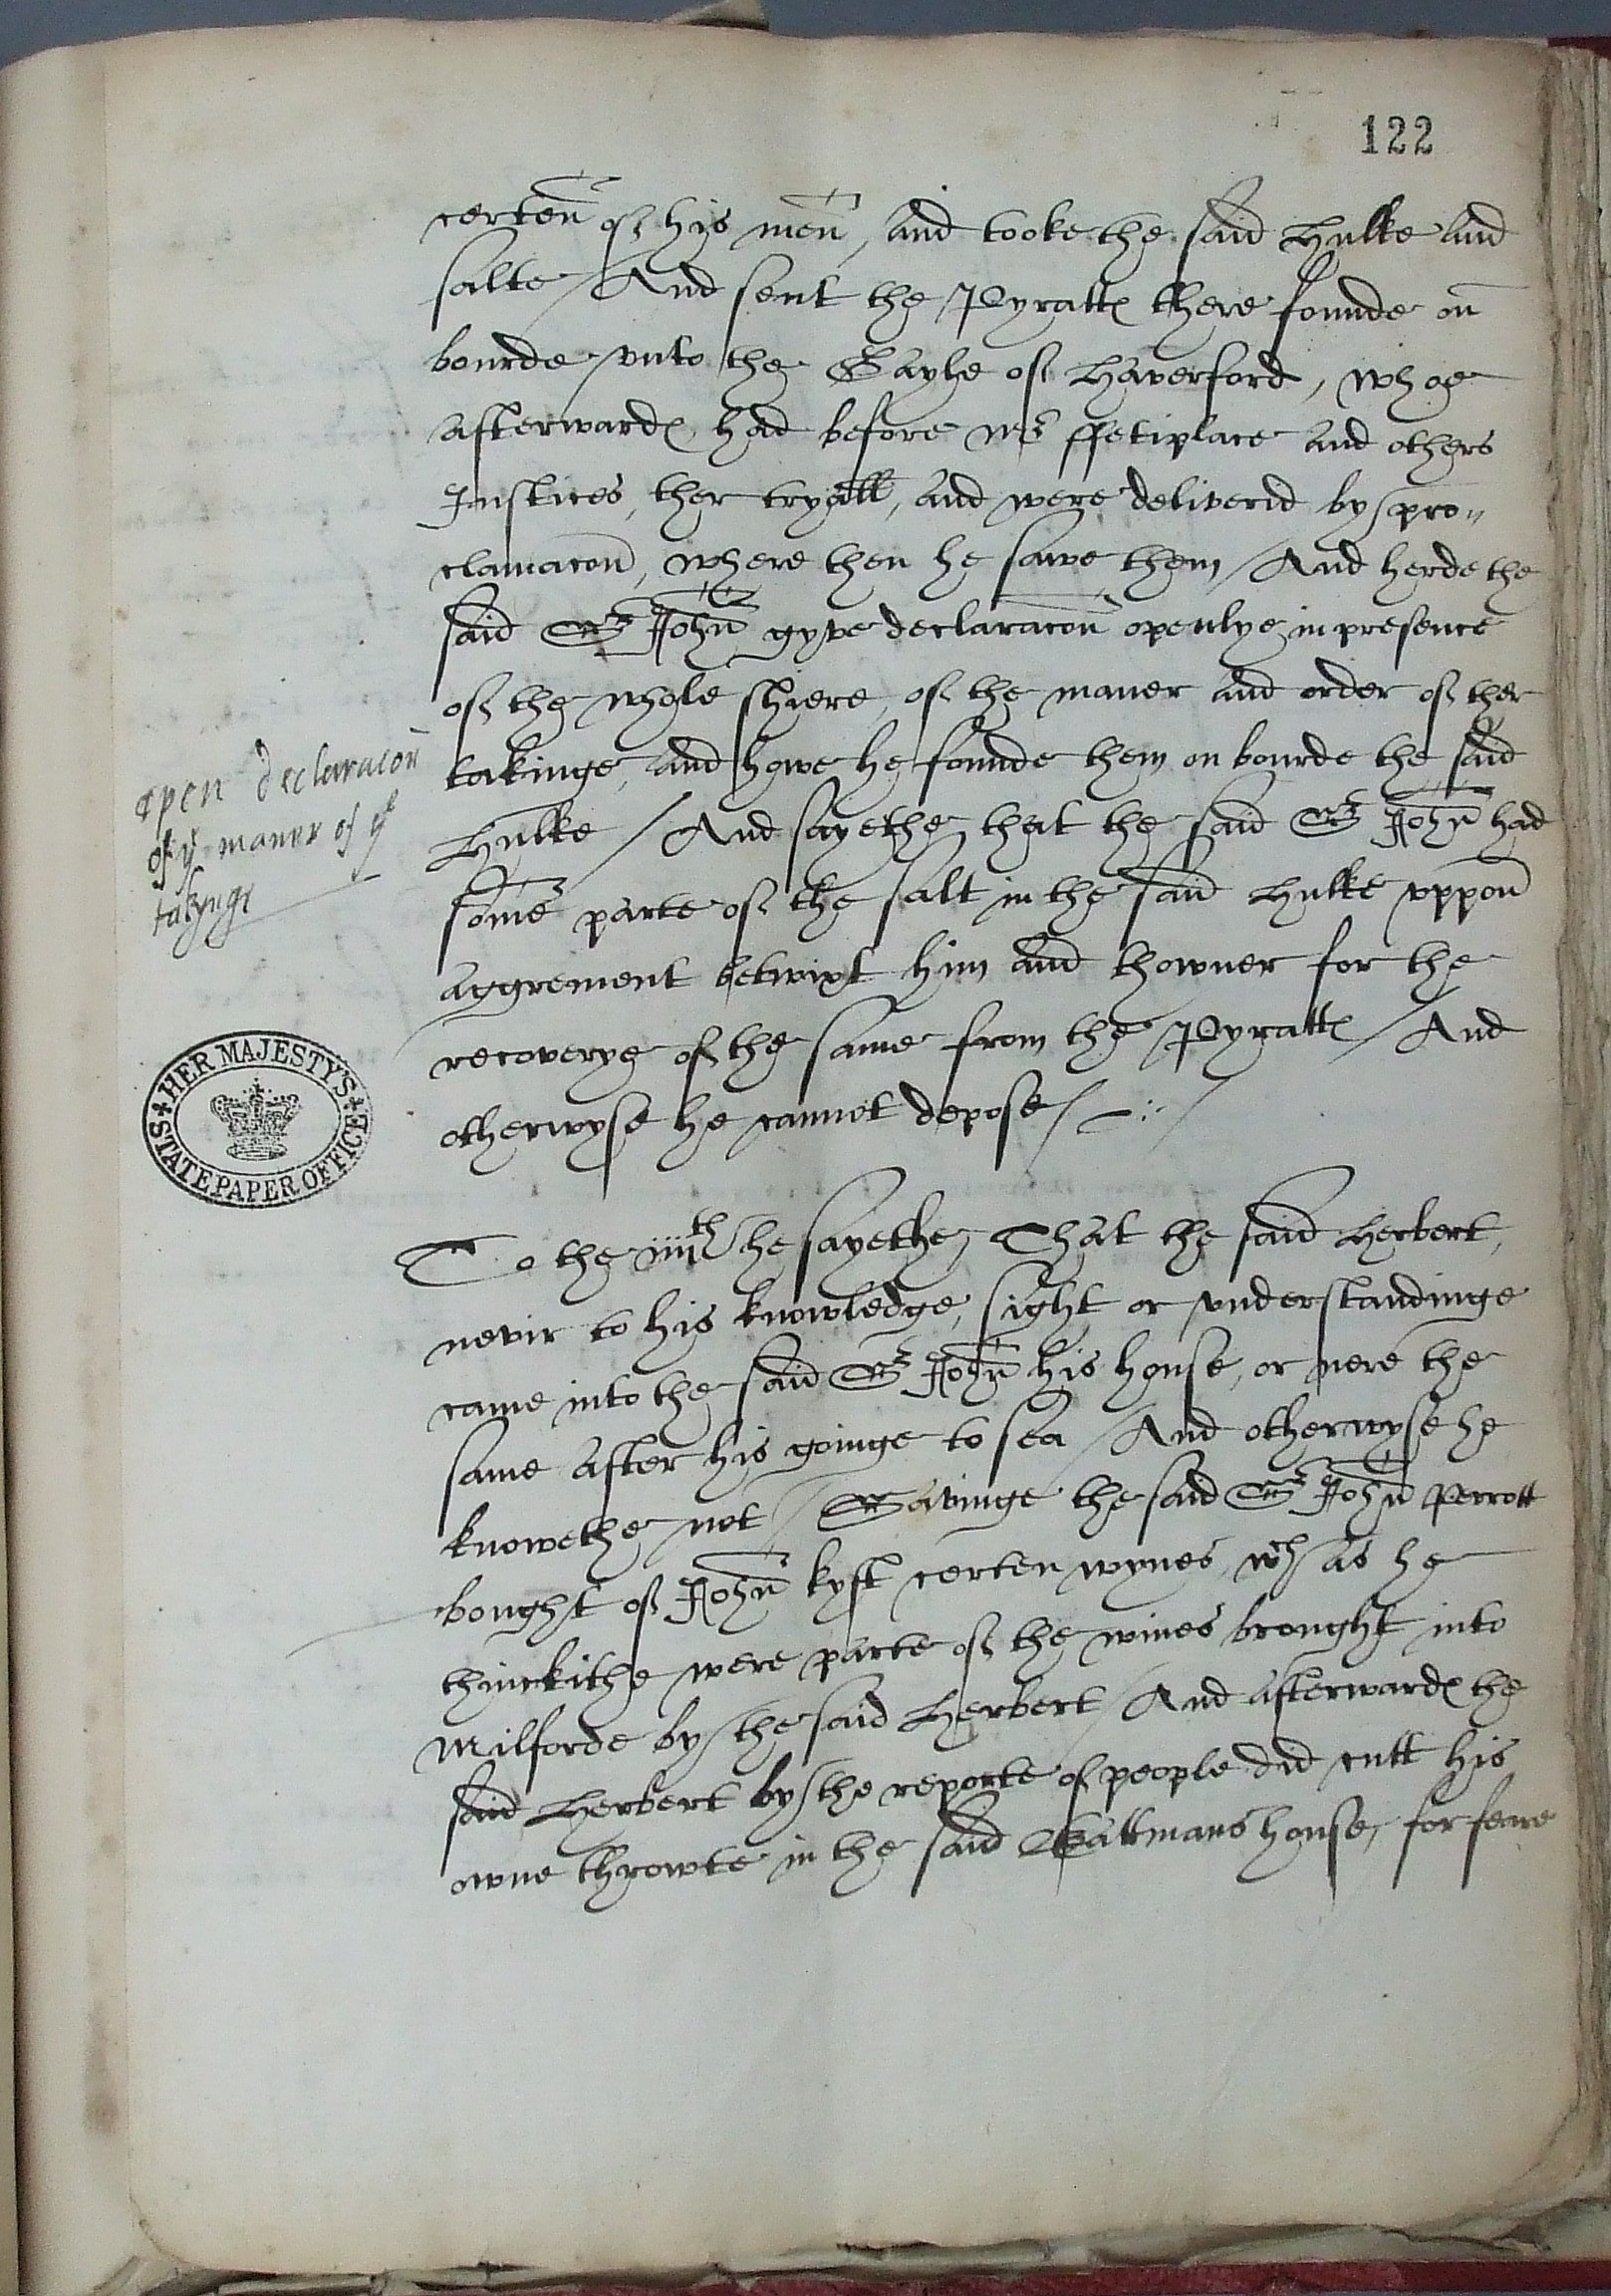 122
certen of his men, and tooke the said Hulke and
salte / And sent the Pyratts there founde on
bourde vnto the Gayle of Haverford, whoe
afterwards had before Mr ffetiplace and others
Justices, ther tryall, and were deliverid by pro„
clamacon, where then he sawe them / And herde the
said Sr John gyve declaracon openlye in presence
of the whole shiere, of the maner and order of ther
takinge, and howe he founde them on bourde the said
Hulke / And sayethe that the said Sr John had
some parte of the salt in the said Hulke vppon
aggrement betwixt him and thowner for the
recoverye of the same from the Pyratts / And
otherwyse he cannot depose /
open declaracon
of ye maner of ye
takynge
HER MAJESTY'S
STATE PAPER OFFICE
To the iiiith he sayethe, That the said Herbert,
nevir to his knowledge, sight or vnderstandinge
came into the said Sr John his house, or nere the
same after his goinge to sea / And otherwyse he
knowethe not / Savinge the said Sr John Perrott
bought of John kyft certen wynes, wch as he
thinckithe were parte of the wines brought into
Milforde by the said Herbert / And afterwards the
said Herbert by the reporte of people did cutt his
owne throwte in the said Batmans house, for feare